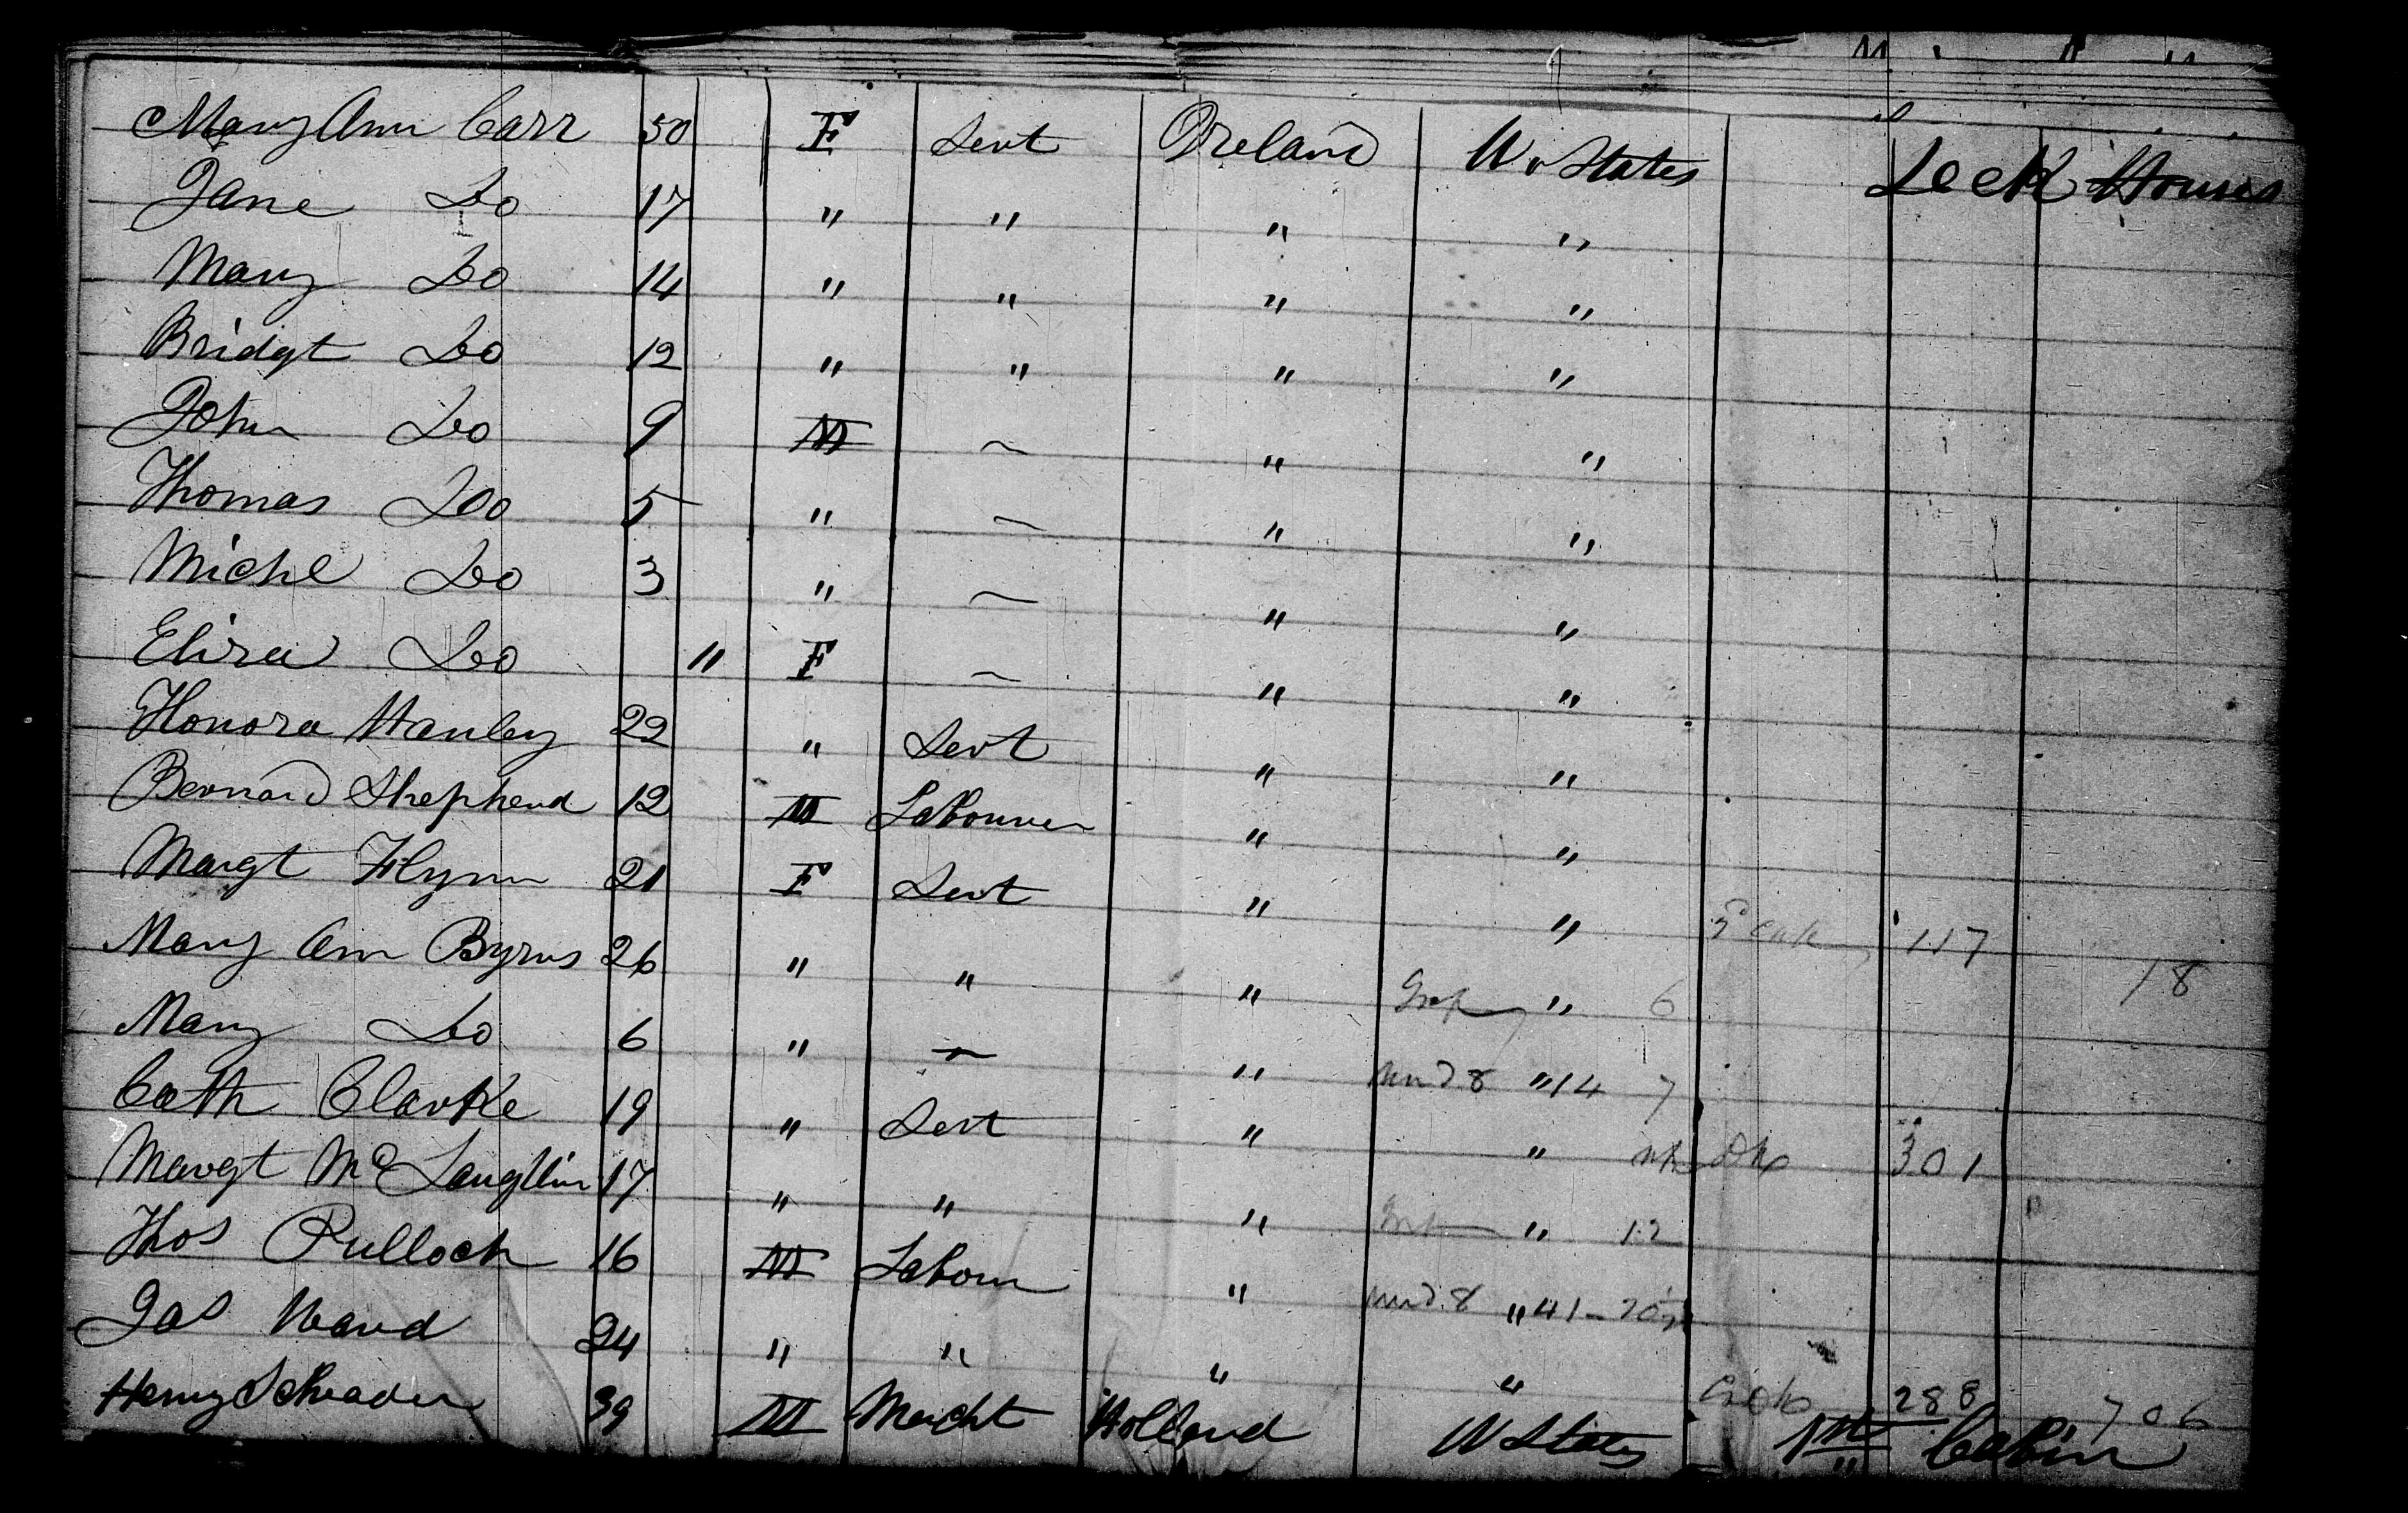 Mary Ann Carr 50 F Servt Ireland U States Deck House
Jane Do 17 " " " "
Mary Do 14 " " " "
Bridgt Do 12 " " " "
John Do 9 M – " "
Thomas Do 5 " – " "
Michl Do 3 " – " "
Eliza Do " F – " "
Honora Hanley 22 " Servt " "
Bernard Shepherd 12 M Labourer " "
Margt Flynn 21 F Servt " " 117
Mary Ann Byrns 26 " " " " 6 18
Mary Do 6 " – " " 14 7
Cath Clarke 19 " Servt " " 301
Margt McLaughlin 17 " " " " 12
Thos Pullock 16 M Labour " " 41
Jas Ward 24 " " " " 288 706
Henry Schrader 39 M Mercht Holland U States 1st Cabin